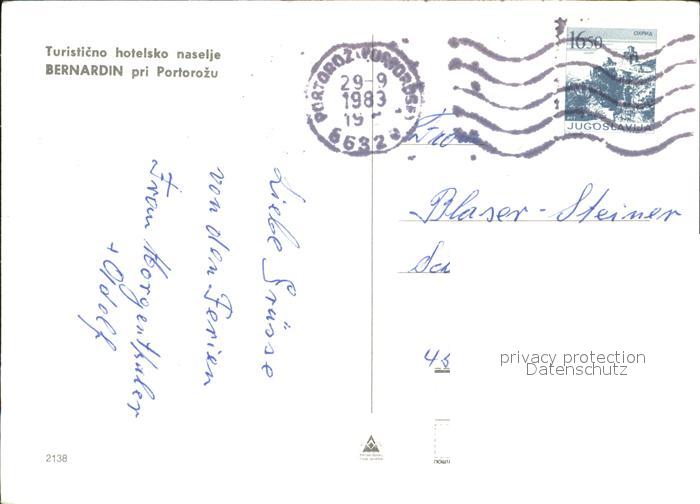 Turistično hotelsko naselje
BERNARDIN pri Portorožu
PORTOROŽ-PORTOROSE
29-9
1983
19
66320
16.50
OHRID
JUGOSLAVIJA
Frau
Blaser-Steiner
45
Liebe Grüsse
von den Ferien
Frau Morgenthaler
+ Adolf
privacy protection
Datenschutz
2138